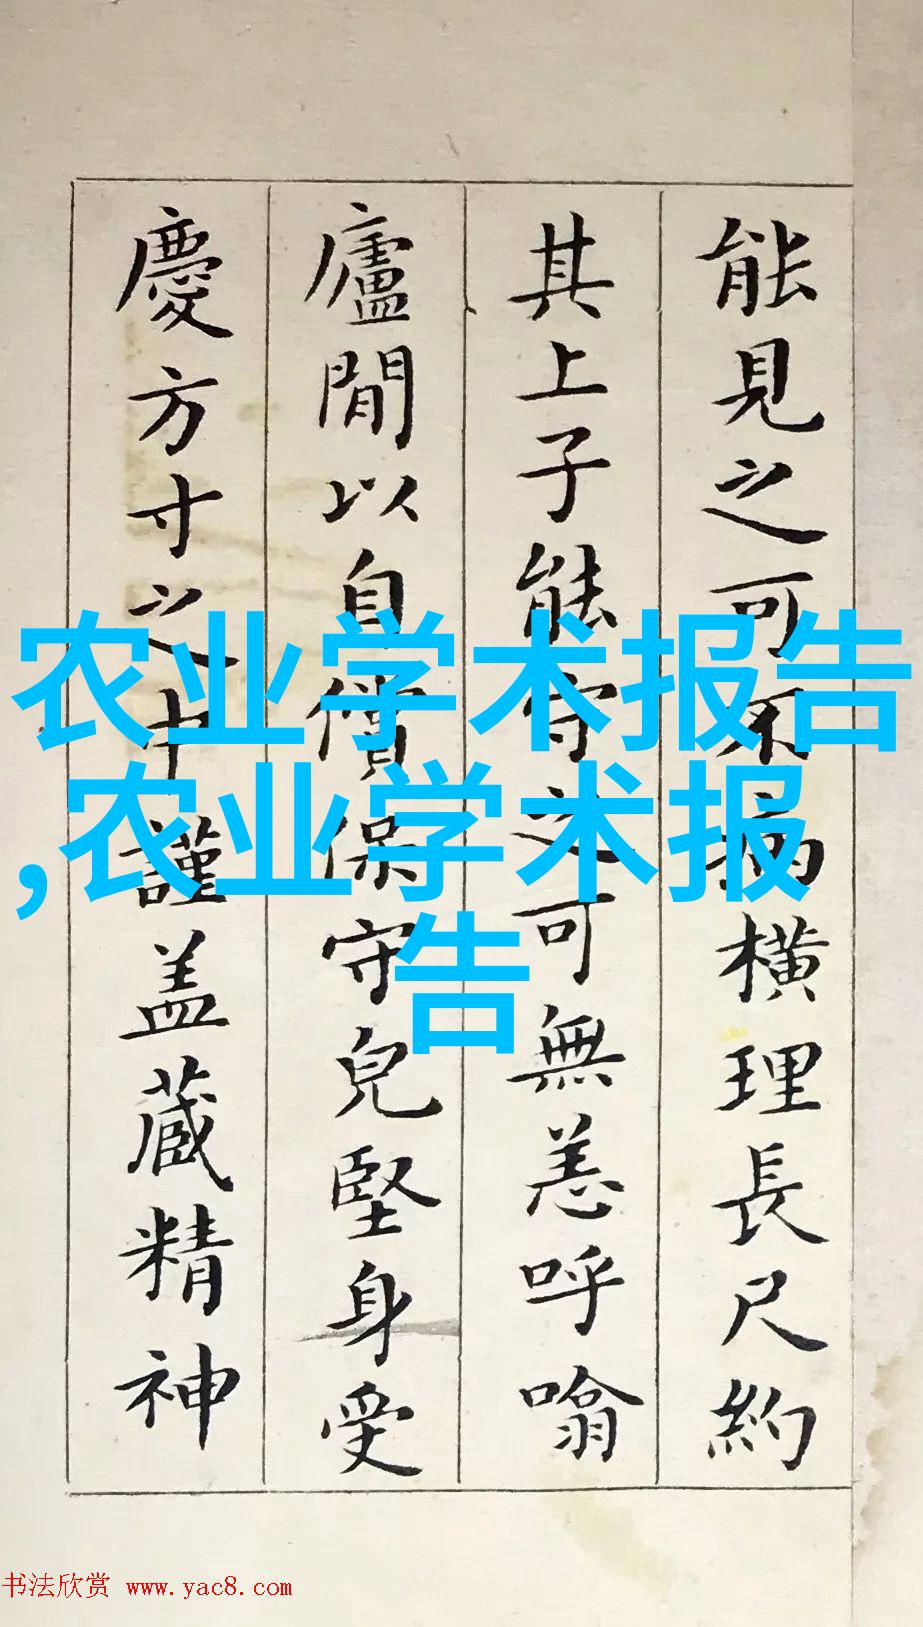 能見之可不病橫理長尺約
其上子能守之可無恙呼噏
廬閒以自償保守皃堅身受
慶方寸之中謹盖藏精神
农业学术报告
,农业学术报
告
书法欣赏 www.yac8.com